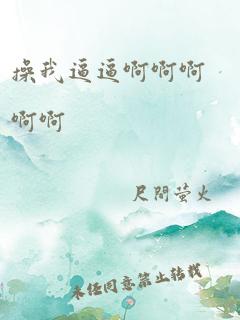 操我逼逼啊啊啊
啊啊
尺間萤火
未经同意禁止转载